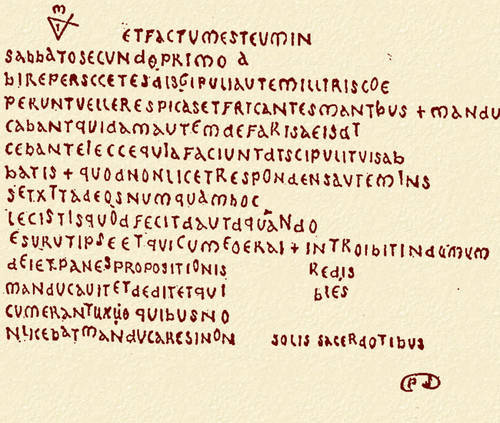 ETFACTUMESTEUMIN
SABBATOSECUNDOPRIMO A
BIREPERSCCETESDISGIPULIAUTEMILLITRISCOE
PERUNTUELLERESPICASETFRICANTESMANTBUS + MANDU
CABANTQUIDAMAUTEMDEFARISAEISDT
CEBANTEIECCEQUIAFACIUNTDTSCIPULITUISAB
BATIS + QUODNONLICETRESPONDENSAUTEMINS
SETXTTADEOSNUMQUAMBOC
LECISTISQUODFECITDAUTDQUANDO
ESURUTIPSEETQUICUMEOERAI + INTROIBITINDUMUM
DEIETPANESPROPOSITIONIS REDIS
MANDUCAUITETDEDITETQUI BLES
CUMERANTUXUO QUIBUSNO
NLICEBATMANDUCARESINON SOLIS SACERDOTIBUS
PS